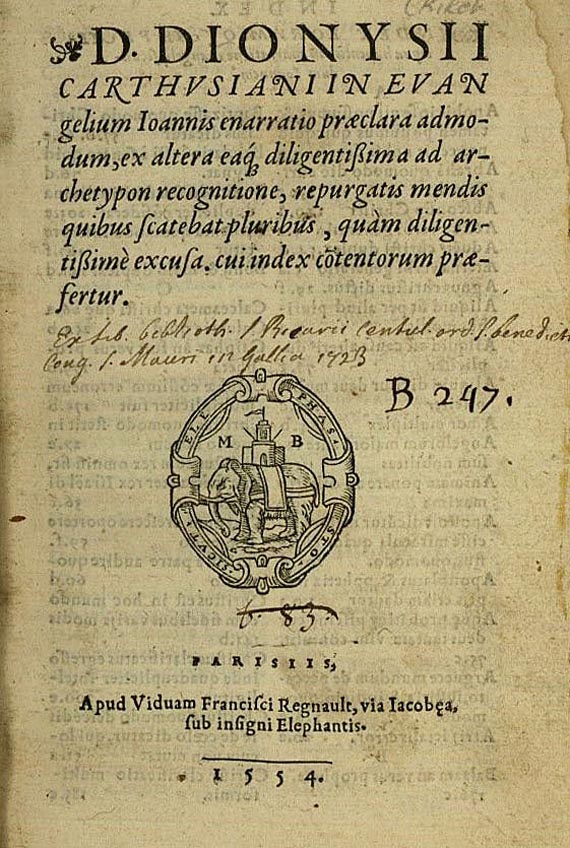 (Rikob
D. DIONYSII
CARTHVSIANI IN EVAN
gelium Ioannis enarratio præclara admo-
dum, ex altera eaq́; diligentißima ad ar-
chetypon recognitione, repurgatis mendis
quibus ſcatebat pluribus, quàm diligen-
tißimè excuſa. cui index cōtentorum præ-
fertur.
Ex lib. biblioth. S Ricarii Centul. ord. S. benedicti
Cong. S. Mauri in Gallia 1723
B 247.
ELE PHAS.
M B
SICVTI STO
6. 83.
PARISIIS,
Apud Viduam Franciſci Regnault, via Iacobęa,
ſub inſigni Elephantis.
1554.